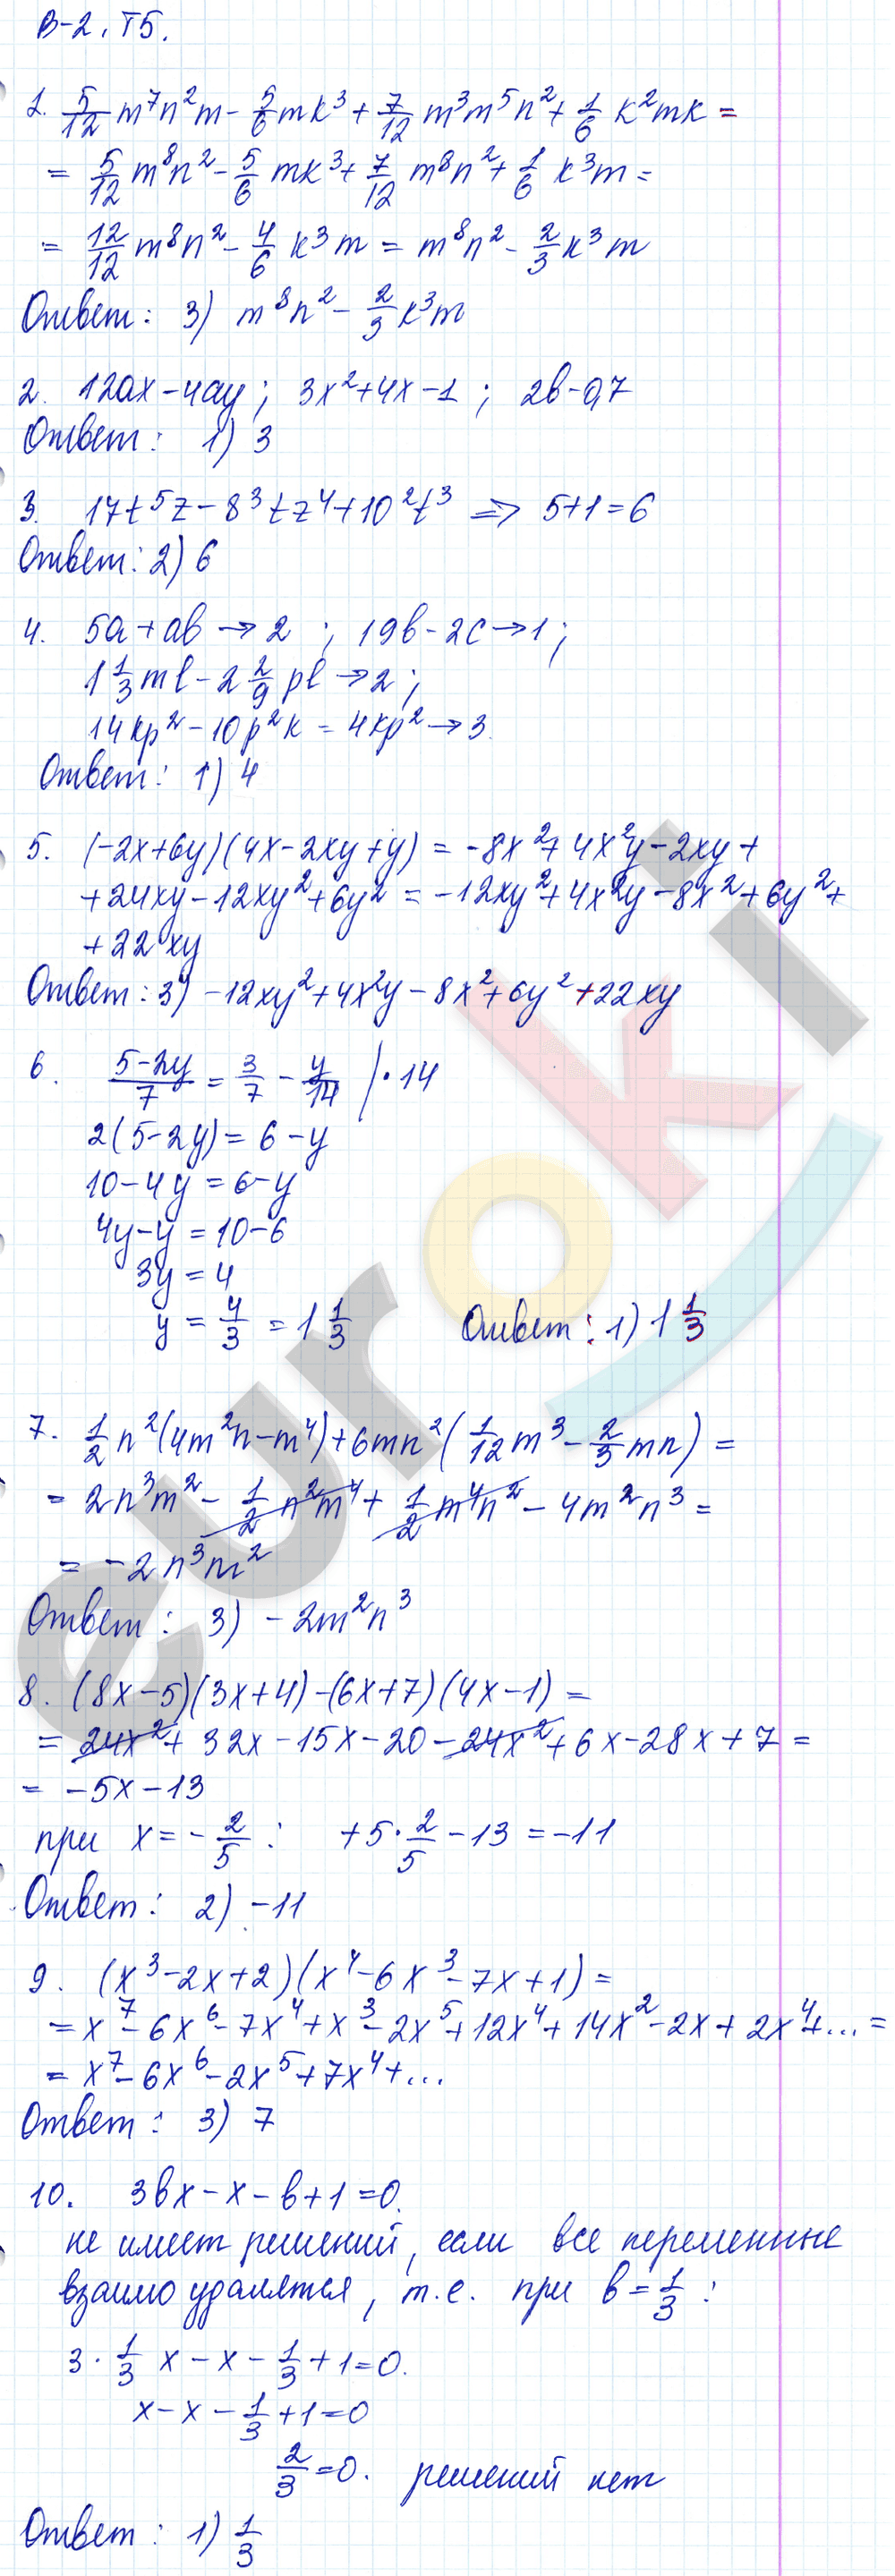 В-2, Т5.
1. 5/12 m⁷n²m - 5/6 mk³ + 7/12 m³m⁵n² + 1/6 k²mk =
= 5/12 m⁸n² - 5/6 mk³ + 7/12 m⁸n² + 1/6 k³m =
= 12/12 m⁸n² - 4/6 k³m = m⁸n² - 2/3 k³m
Ответ: 3) m⁸n² - 2/3 k³m
2. 12ax - 4ay ; 3x² + 4x - 1 ; 2b - 0,7
Ответ: 1) 3
3. 17t⁵z - 8³tz⁴ + 10²t³ => 5+1=6
Ответ: 2) 6
4. 5a + ab → 2 ; 19b - 2c → 1 ;
1 1/3 ml - 2 2/9 pl → 2 ;
14kp² - 10p²k = 4kp² → 3.
Ответ: 1) 4
5. (-2x+6y)(4x-2xy+y) = -8x² + 4x²y - 2xy +
+ 24xy - 12xy² + 6y² = -12xy² + 4x²y - 8x² + 6y² +
+ 22xy
Ответ: 3) -12xy² + 4x²y - 8x² + 6y² + 22xy
6. (5-2y)/7 = 3/7 - y/14 | · 14
2(5-2y) = 6 - y
10 - 4y = 6 - y
4y - y = 10 - 6
3y = 4
y = 4/3 = 1 1/3 Ответ: 1) 1 1/3
7. 1/2 n²(4m²n - m⁴) + 6mn²(1/12 m³ - 2/3 mn) =
= 2n³m² - 1/2 n²m⁴ + 1/2 m⁴n² - 4m²n³ =
= -2n³m²
Ответ: 3) -2m²n³
8. (8x-5)(3x+4) - (6x+7)(4x-1) =
= 24x² + 32x - 15x - 20 - 24x² + 6x - 28x + 7 =
= -5x - 13
при x = -2/5 : +5 · 2/5 - 13 = -11
Ответ: 2) -11
9. (x³ - 2x + 2)(x⁴ - 6x³ - 7x + 1) =
= x⁷ - 6x⁶ - 7x⁴ + x³ - 2x⁵ + 12x⁴ + 14x² - 2x + 2x⁴ + ... =
= x⁷ - 6x⁶ - 2x⁵ + 7x⁴ + ...
Ответ: 3) 7
10. 3bx - x - b + 1 = 0.
не имеет решений, если все переменные
взаимо удалятся, т.е. при b = 1/3 :
3 · 1/3 x - x - 1/3 + 1 = 0.
x - x - 1/3 + 1 = 0
2/3 = 0. решений нет
Ответ: 1) 1/3
euroki